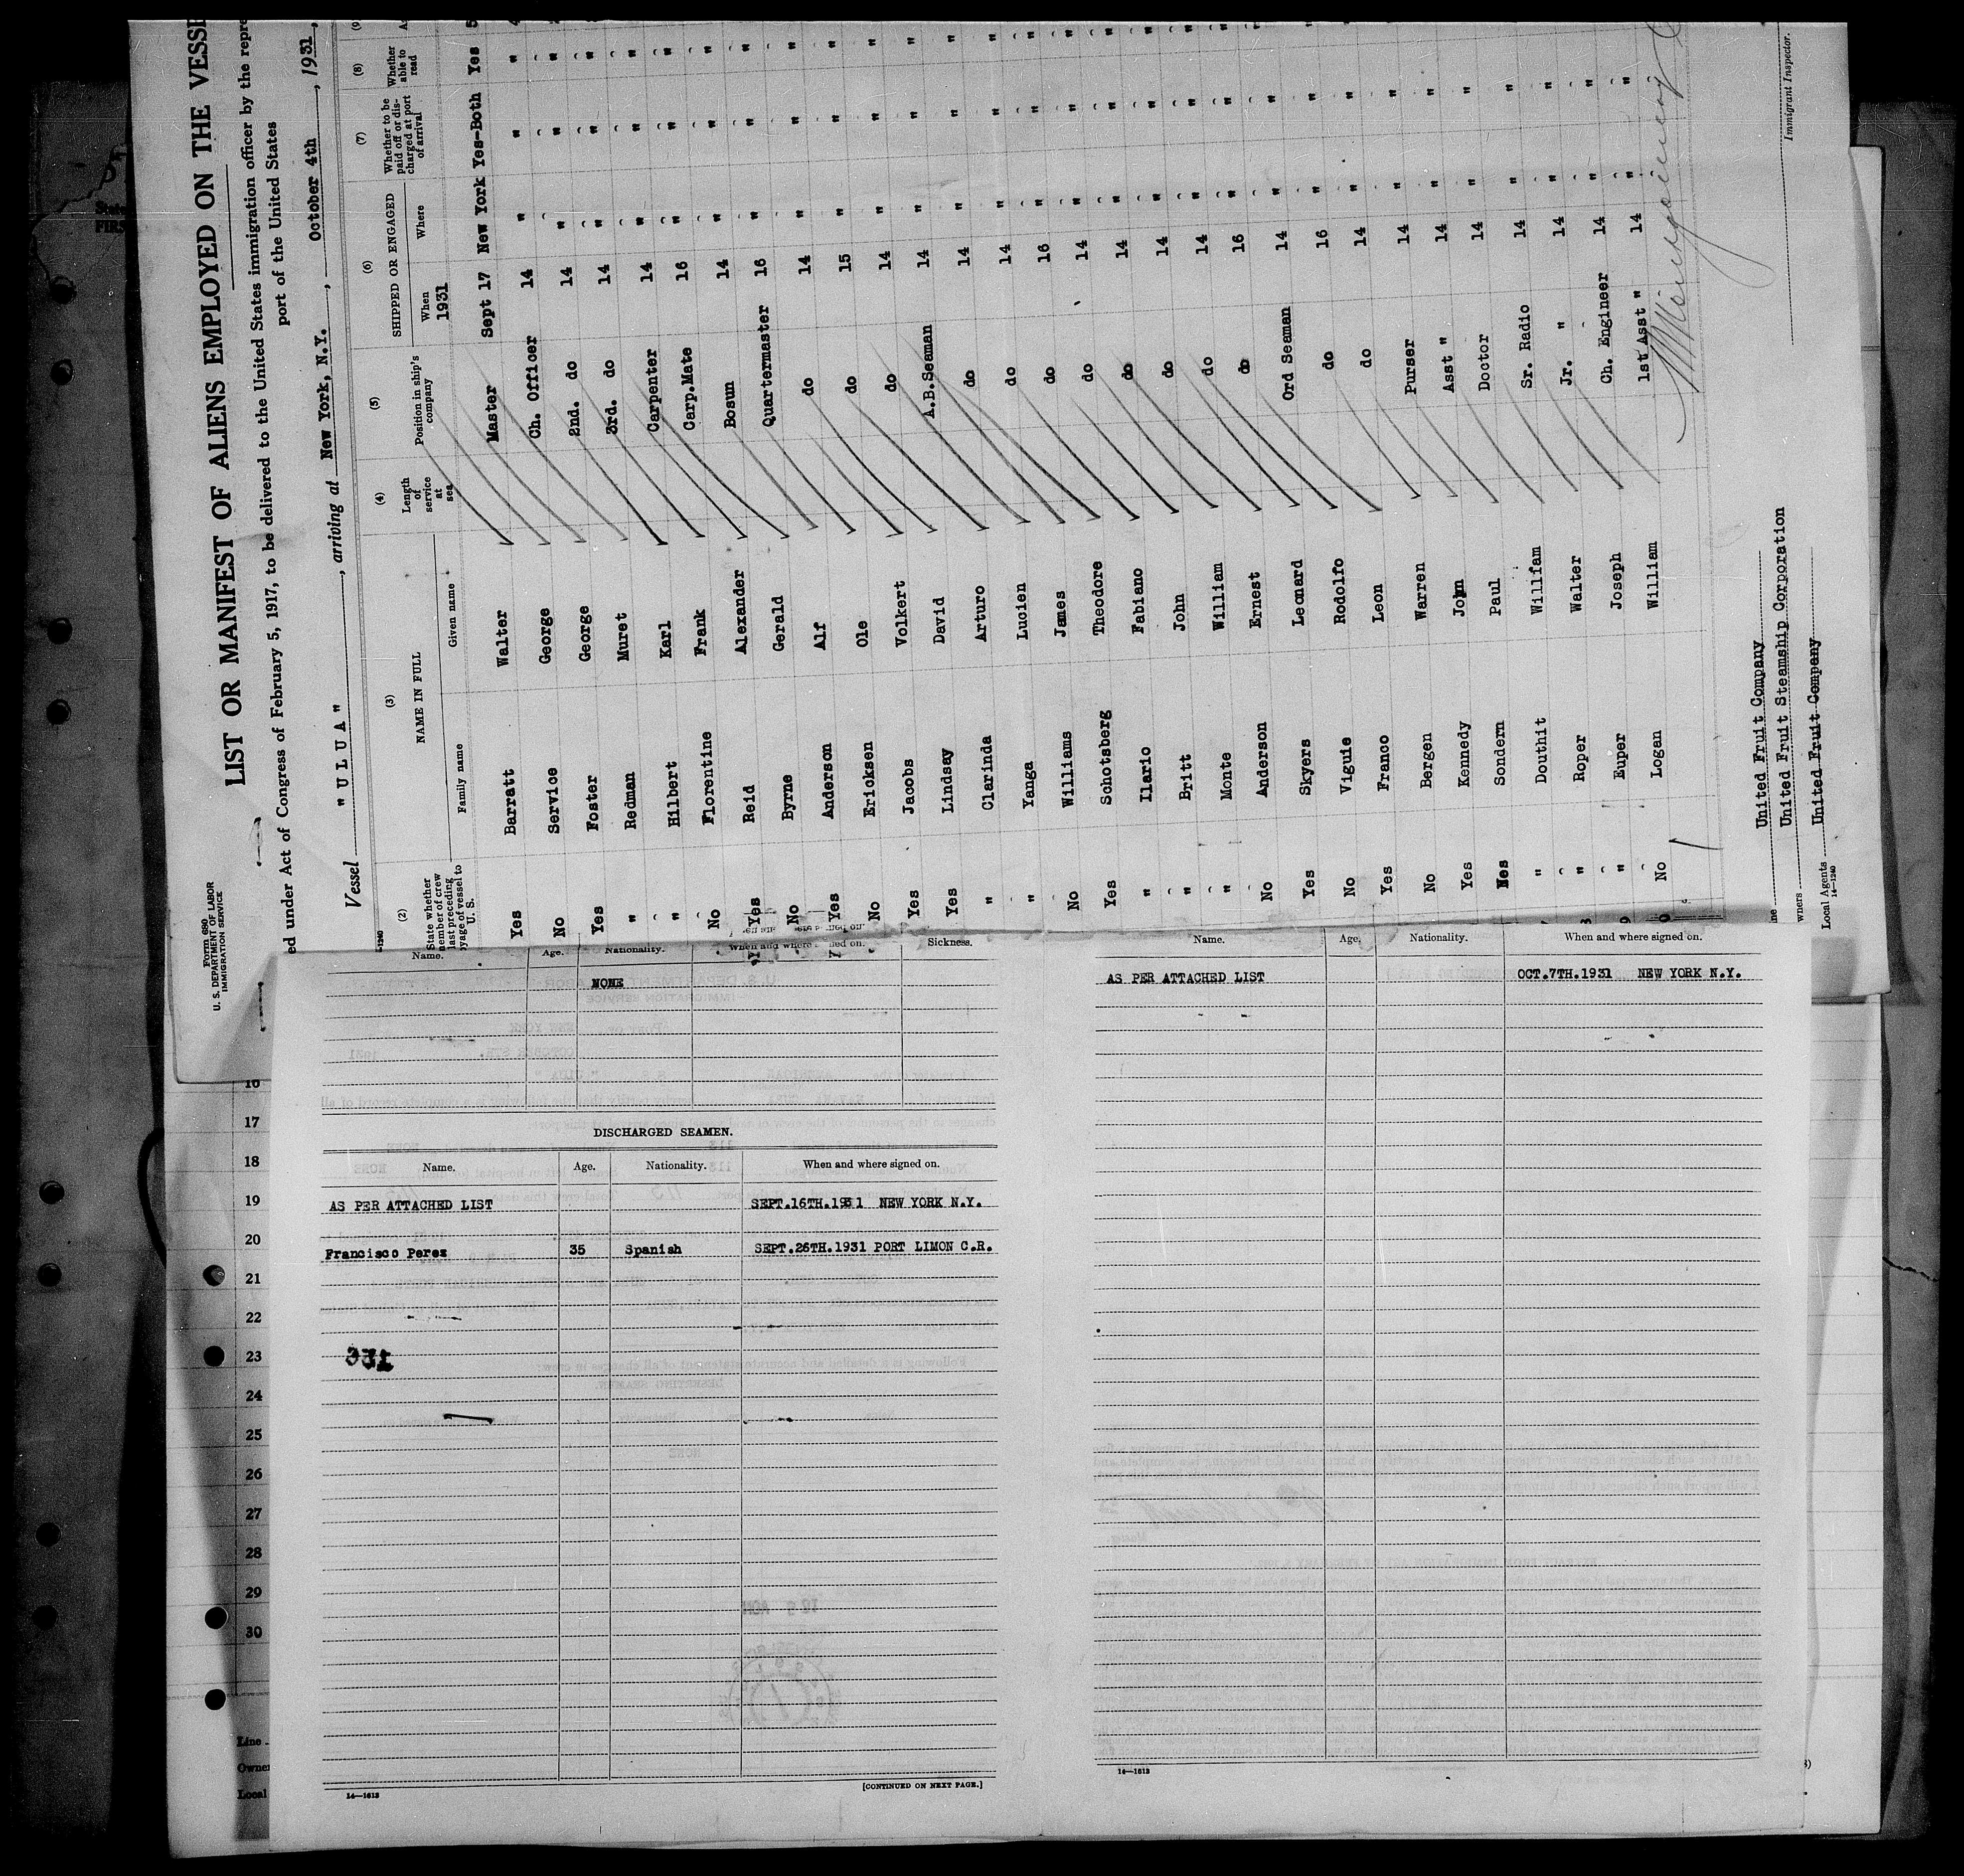 Form 680
U. S. DEPARTMENT OF LABOR
IMMIGRATION SERVICE
LIST OR MANIFEST OF ALIENS EMPLOYED ON THE VESSE
ed under Act of Congress of February 5, 1917, to be delivered to the United States immigration officer by the repre
port of the United States
Vessel " U L U A " , arriving at New York, N.Y. , October 4th , 1931
(2) (3) (4) (5) (6) (7) (8)
State whether member of crew last preceding voyage of vessel to U. S. NAME IN FULL Length of service at sea Position in ship's company SHIPPED OR ENGAGED Whether to be paid off or discharged at port of arrival Whether able to read
Family name Given name When Where
1931
Yes Barratt Walter Master Sept 17 New York Yes-Both Yes
No Service George Ch. Officer 14 " " "
Yes Foster George 2nd. do 14 " " "
" Redman Muret 3rd. do 14 " " "
" Hilbert Karl Carpenter 14 " " "
No Florentine Frank Carp.Mate 16 " " "
Yes Reid Alexander Bosun 14 " " "
No Byrne Gerald Quartermaster 16 " " "
Yes Anderson Alf do 14 " " "
No Ericksen Ole do 15 " " "
Yes Jacobs Volkert do 14 " " "
Yes Lindsay David A.B.Seaman 14 " " "
" Clarinda Arturo do 14 " " "
" Yanga Lucien do 14 " " "
No Williams James do 16 " " "
Yes Schotsberg Theodore do 14 " " "
" Ilario Fabiano do 14 " " "
" Britt John do 14 " " "
" Monte William do 14 " " "
No Anderson Ernest do 16 " " "
Yes Skyers Leonard Ord Seaman 14 " " "
No Viguie Rodolfo do 16 " " "
Yes Franco Leon do 14 " " "
No Bergen Warren Purser 14 " " "
Yes Kennedy John Asst " 14 " " "
Sondern Paul Doctor 14 " " "
" Douthit William Sr. Radio 14 " " "
" Roper Walter Jr. " 14 " " "
" Euper Joseph Ch. Engineer 14 " " "
No Logan William 1st Asst " 14 " " "
United Fruit Company
United Fruit Steamship Corporation
Local Agents United Fruit Company
14—1240
Immigrant Inspector.
Name. Age. Nationality. When and where signed on. Sickness.
NONE
DISCHARGED SEAMEN.
Name. Age. Nationality. When and where signed on.
AS PER ATTACHED LIST SEPT.16TH.1931 NEW YORK N.Y.
Francisco Perez 35 Spanish SEPT.26TH.1931 PORT LIMON C.R.
331
[CONTINUED ON NEXT PAGE.]
14—1613
Name. Age. Nationality. When and where signed on.
AS PER ATTACHED LIST OCT.7TH.1931 NEW YORK N.Y.
14—1613
16
17
18
19
20
21
22
23
24
25
26
27
28
29
30
Line
Owner
Local